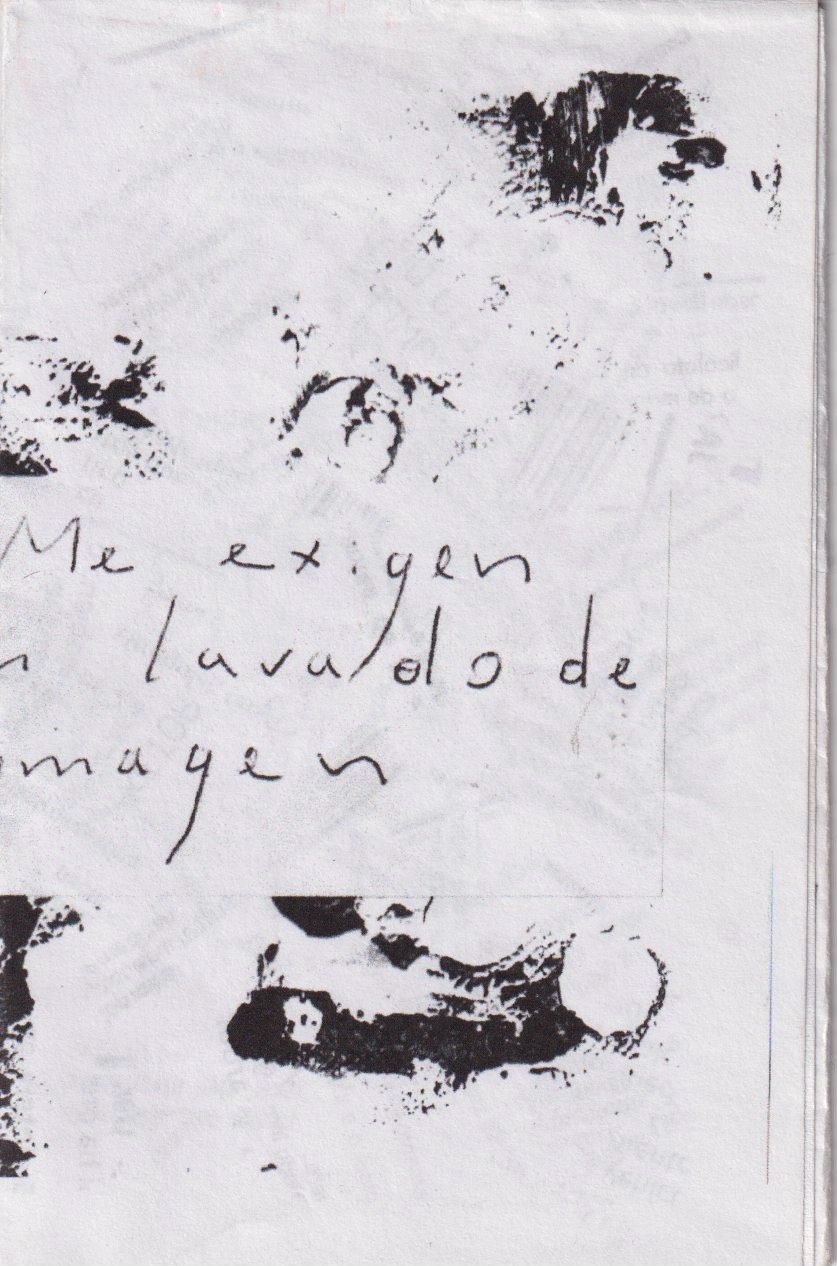 Me exigen
n lavado de
magen